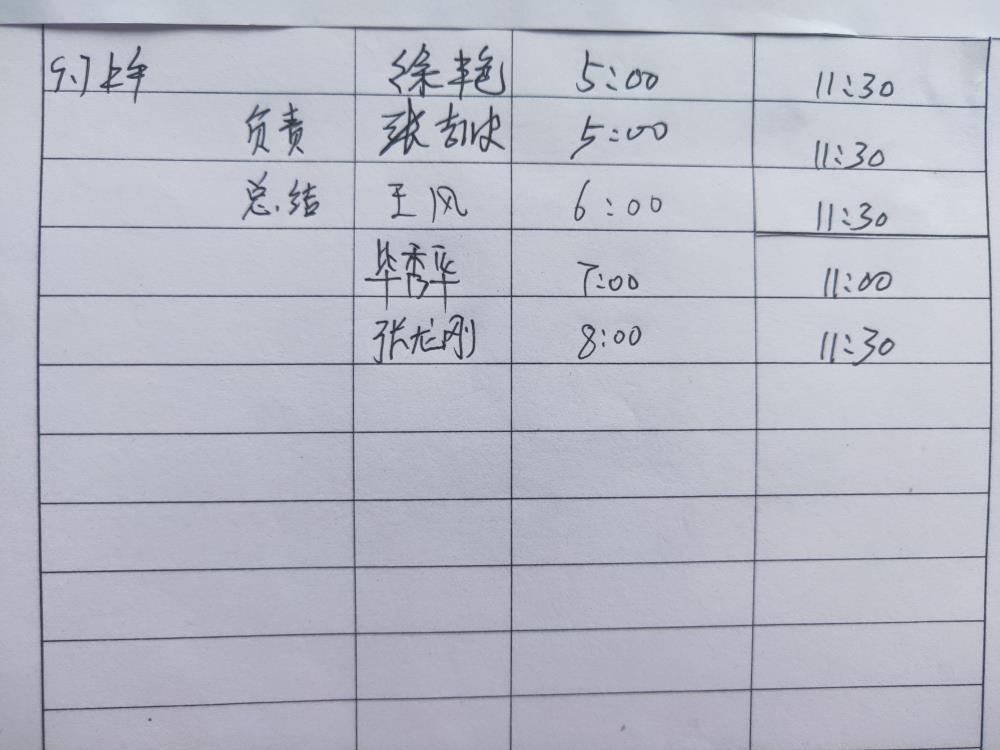 9.7上午 徐丰艳 5:00 11:30
负责 张 5:00 11:30
总结 王风 6:00 11:30
毕秀华 7:00 11:00
张龙刚 8:00 11:30